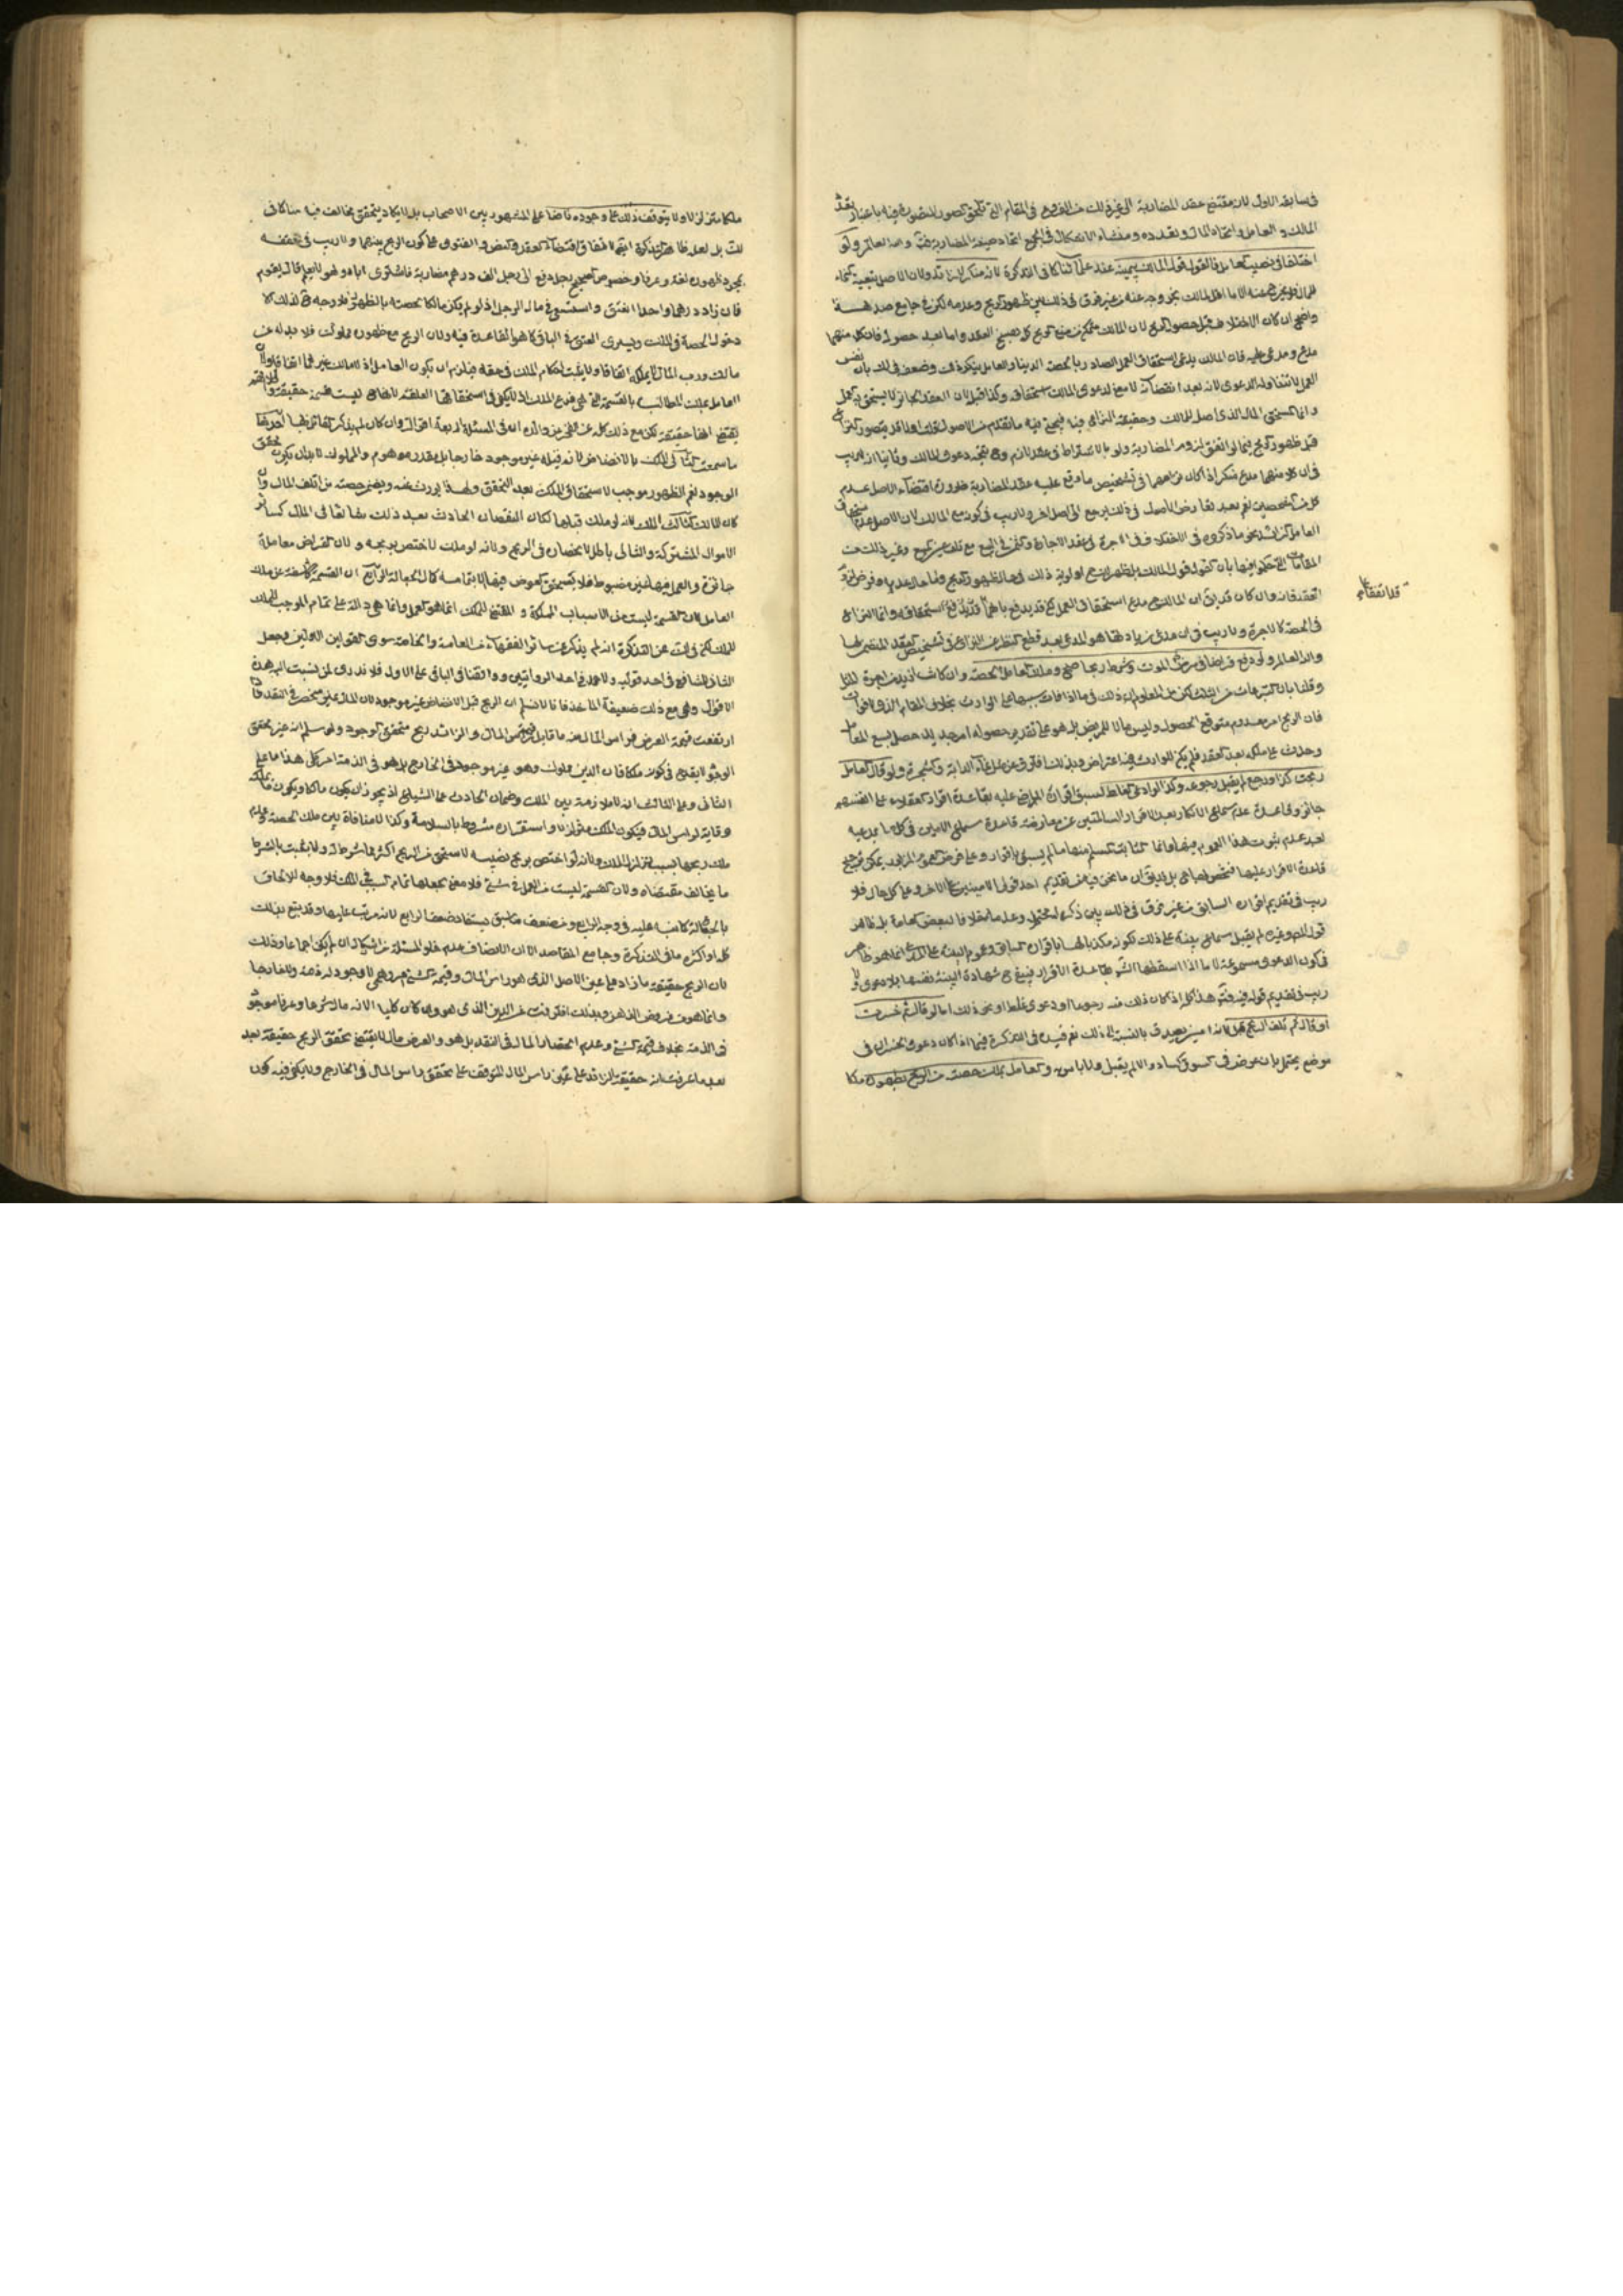 في سابقه الاول لان مقتضى عقد المضاربة الى غير ذلك من الفروع في المقام التي تلحق الصور المتصورة فيه باعتبار تعدد
المالك والعامل واتحاد المال وتعدده ومنشاء الاشكال في الجميع اتحاد صيغة المضاربة والله العالم ولو
اختلفا في نصيب العامل فالقول قول المالك بيمينه عندنا كما في التذكرة لانه منكر للزائد ولان الاصل تبعية النماء
للمال فلا يخرج عنه الا ما اقر المالك بخروجه عنه من غير فرق في ذلك بين ظهور الربح وعدمه لكن في جامع صد هـ
واضح ان كان الاختلاف قبل حصول الربح لان المالك متمكن من منع الربح كله بفسخ العقد واما بعد حصوله فان كلا منهما
مدع ومدعى عليه فان المالك يدعي استحقاق العمل الصادر بالحصة الدنيا والعامل ينكر ذلك وضعف ذلك بان نفس
العمل لا تتناوله الدعوى لانه بعد انقضائه لا معنى لدعوى المالك استحقاقه وكذا قبل لان العقد الجائز لا يستحق به العمل
وانما المستحق المال الذي اصله للمالك وحقيقة النزاع فيه فيجئ فيه ما تقدم من الاصول قلت هذا قد يتصور النزاع
قبل ظهور الربح فيما لو اتفق لزوم المضاربة ولو بالاشتراط في عقد لازم
في ان كلا منهما مدع منكر اذا كان نزاعهما في تشخيص ما وقع عليه عقد المضاربة ضرورة اقتضاء الاصل عدم
كل من الشخصين نعم بعد تعارض الاصل في ذلك يرجع الى اصل اخر ولا ريب في كونه مع المالك لان الاصل عدم استحقاق
العامل الزائد نحو ما ذكروه في الاختلاف في الاجرة في عقد الاجارة والثمن في البيع مع تلف عين المبيع وغير ذلك من
المقامات التي حكموا فيها بان القول قول المالك
العقد فانه وان كان قد يقال ان المالك مدع استحقاق العمل وانما النزاع
قد اتفقا على
في الحصة كالاجرة ولا ريب في ان مدعي زيادتها هو المدعي بعد قطع النظر عن النزاع في تشخيص العقد المتضمن لها
والله العالم ولو دفع قراضا في مرض الموت وشرط ربحا صح وملك العامل الحصة وان كانت ازيد من اجرة المثل
وقلنا بان التبرعات من الثلث لكن من المعلوم ان ذلك في ما اذا فات بسببها على الوارث بخلاف المقام الذي لا فوات
فان الربح امر معدوم متوقع الحصول وليس مالا للمريض بل هو على تقدير حصوله امر جديد حصل بسعي العامل
وحدث على ملكه بعد العقد فلم يكن للوارث فيه اعتراض وبذلك افترق عن نماء الدابة والشجرة ولو قال العامل
ربحت كذا ورجع لم يقبل رجوعه وكذا لو ادعى الغلط لسبق اقراره الماضي عليه بقاعدة اقرار العقلاء على انفسهم
جائز وقاعدة عدم سماع الانكار بعد الاقرار السالمتين عن معارضة قاعدة سماع الامين في كل ما يدعيه
لعدم ثبوت هذا العموم فيها وانما الثابت المسلم منها ما لم يسبق باقرار وعلى فرض العموم المزبور يمكن ترجيح
قاعدة الاقرار عليها
ريب في تقديم اقراره السابق من غير فرق في ذلك بين ذكره لمحتمل وعدمه خلافا لبعض العامة بل ظاهر
قول المصنف وغيره لم يقبل سماع بينة على ذلك لكونه مكذبا لها باقراره السابق وعموم البينة على المدعي انما هو ظاهر
في كون الدعوى مسموعة لا ما اذا اسقطها الشارع بقاعدة الاقرار
ريب في تقديم قوله فيه هذا كله اذا كان ذلك منه رجوعا او دعوى غلط او نحو ذلك اما لو قال ثم خسرت
او قال ثم تلف الربح قبل لانه امين يصدق بالنسبة الى ذلك نعم قيده في التذكرة فيما اذا كان دعوى الخسران في
موضع يحتمل بان عرض في السوق كساد والا لم يقبل ولا باس به والعامل يملك حصته من الربح بظهوره ملكا
ملكا متزلزلا ولا يتوقف ذلك على وجوده ناضا على المشهور بين الاصحاب بل لا يكاد يتحقق مخالف فيه منا كما في
لك بل لعله ظاهر التذكرة ايضا لاتفاق اقتضاء العقد والنص والفتوى على كون الربح بينهما ولا ريب في تحققه
بمجرد ظهوره لغة وعرفا وخصوص الصحيح رجل دفع الى رجل الف درهم مضاربة فاشترى اباه وهو لا يعلم قال يقوم
فان زاد درهما واحدا انعتق واستسعى في مال الرجل اذ لو لم يكن مالكا لحصته بالظهور فلا وجه
دخول الحصة في الملك ويسري العتق في الباقي كما هو القاعدة فيه ولان الربح مع ظهوره مملوك فلا بد له من
مالك ورب المال لا يملكه اتفاقا ولا يثبت احكام الملك في حقه فيلزم ان يكون العامل اذ لا مالك غيرهما اتفاقا ولان
العامل يملك المطالبة بالقسمة التي هي فرع الملك
يقتضي لكن مع ذلك كله عن فخر الدين عن والده ان في المسئلة اربعة اقوال وان كان لم يذكر القائل بها احدها
ما سمعت الثاني الملك بالانضاض لانه قبله غير موجود خارجا بل مقدر موهوم والمملوك لا بد ان يكون محقق
الوجود نعم الظهور موجب لاستحقاق الملك بعد التحقق ولهذا يورث عنه ويضمن حصته من اتلف المال وان
كان للمالك الثالث الملك لانه لو ملك قبلها لكان النقصان الحادث بعد ذلك شائعا في المال كسائر
الاموال المشتركة والتالي باطل لانحصاره في الربح ولانه لو ملك لاختص بربحه ولان القراض معاملة
جائزة والعمل فيها غير مضبوط فلا يستحق العوض فيها الا بتمامه كمال الجعالة الرابع ان القسمة كاشفة عن ملك
العامل لان القسمة ليست من الاسباب المملكة والمقتضي للملك انما هو العمل وانما هي دالة على تمام الموجب للملك
للملك لكن في لك عن التذكرة انه لم يذكر عن سائر الفقهاء من العامة والخاصة سوى القولين الاولين وجعل
الثاني للشافعي في احد قوليه ولاحمد في احد الروايتين ووافقنا في الباقي على الاول فلا ندري لمن نسب هذه
الاقوال وهي مع ذلك ضعيفة الماخذ فانا لا نسلم ان الربح قبل الانضاض غير موجود لان المال غير منحصر في النقد فاذا
ارتفعت قيمة العرض فراس المال منه ما قابل قيمة راس المال والزائد ربح متحقق الوجود ولو سلم انه غير محقق
الوجود لا يقدح في كونه مملوكا فان الدين مملوك وهو غير موجود في الخارج بل هو في الذمة امر كلي هذا ما على
الثاني وعلى الثالث انه لا ملازمة بين الملك وضمان الحادث على الشياع اذ يجوز ان يكون مالكا ويكون ما يملكه
وقاية لراس المال فيكون الملك متزلزلا واستقراره مشروط بالسلامة وكذا لا منافاة بين ملك الحصة وعدم
ملك ربحها بسبب تزلزل الملك ولانه لو اختص بربح نصيبه لاستحق من الربح اكثر مما شرط له ولا يثبت بالشرط
ما يخالف مقتضاه ولان القسمة ليست من العمل في شئ فلا معنى لجعلها تمام السبب في الملك فلا وجه لالحاق
بالجعالة كما نبه عليه في وجه الرابع ومن ضعف ما سبق يستفاد ضعف الرابع لانه مرتب عليها وقد يتبع بذلك
كله او اكثره ما في التذكرة وجامع المقاصد الا ان الانصاف عدم خلو المسئلة من اشكال ان لم يكن اجماعا وذلك
لان الربح حقيقة ما زاد على عين الاصل الذي هو راس المال وقيمة الشئ امر وهمي لا وجود له ذمة ولا خارجا
وانما هو مفروض الذهن وبذلك افترقت عن الدين الذي هو وان كان كليا الا انه مال شرعا وعرفا موجود
في الذمة بخلاف قيمة الشئ وعدم انحصار المال في النقد بل هو والعرض مال لا يقتضي تحقق الربح حقيقة بعد
بعد ما عرفت انه حقيقة الزائد على عين راس المال المتوقف على تحقق راس المال في الخارج ولا يكفي فيه كون